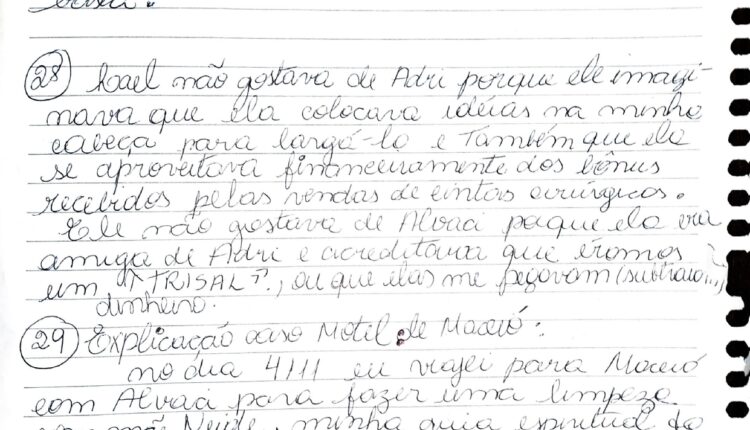 28 Lael não gostava de Adri porque ele imagi-
nava que ela colocava idéias na minha
cabeça para largá-lo e também que ela
se aproveitava financeiramente dos bônus
recebidos pelas vendas de cintas cirúrgicas.
Ele não gostava de Alvaci porque ela era
amiga de Adri e acreditava que éramos
um "TRISAL", ou que elas me pegavam (subtraia...)
dinheiro.
29 Explicação caso Motel de Maceió:
no dia 4/11 eu viajei para Maceió
com Alvaci para fazer uma limpeza
mãe Neide, minha guia espiritual do